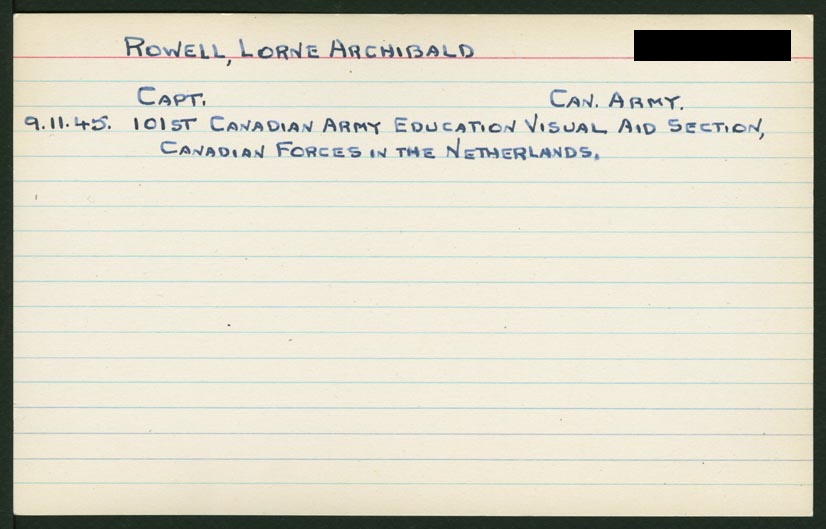 ROWELL, LORNE ARCHIBALD
CAPT. CAN. ARMY.
9.11.45. 101ST CANADIAN ARMY EDUCATION VISUAL AID SECTION,
CANADIAN FORCES IN THE NETHERLANDS.